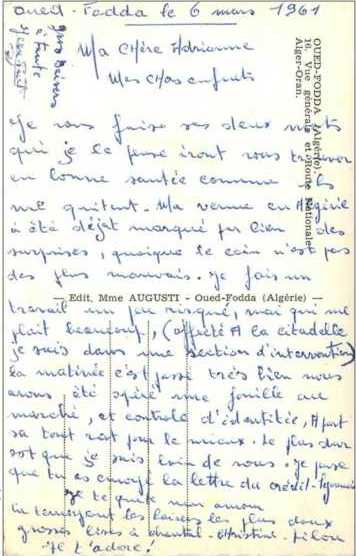 Oueil-Fodda le 6 mars 1961
gros baisers
à toute
Ma chère Adrianne
Mes chas enfants
OUED-FODDA (Algérie).
16. Vue générale et Route Nationale
Alger-Oran.
Je vous faise ses deux mots
qui je le pense iront vous trouver
en bonne santée comme ils
me quitent. Ma venue en Algérie
à été déjat marqué par bien des
surprises, quoique le coin n'est pas
des plus mauvais. Je fais un
— Edit. Mme AUGUSTI - Oued-Fodda (Algérie) —
travail un peu risqué, mai qui me
plait beaucoup, (affecté A la citadelle
je suis dans une section d'intervention)
La matinée c'est passé très bien nous
avons été opéré une fouille au
marché, et controle d'identitée, A part
sa tout vat pour le mieux. Le plus dur
est que je suis loin de vous. Je pense
que tu as envoyé la lettre du crédit
Je te quite mon amour
en t'envoyant les baisers les plus doux
grosses bises à chantal - christine - filou
Je t'adore!